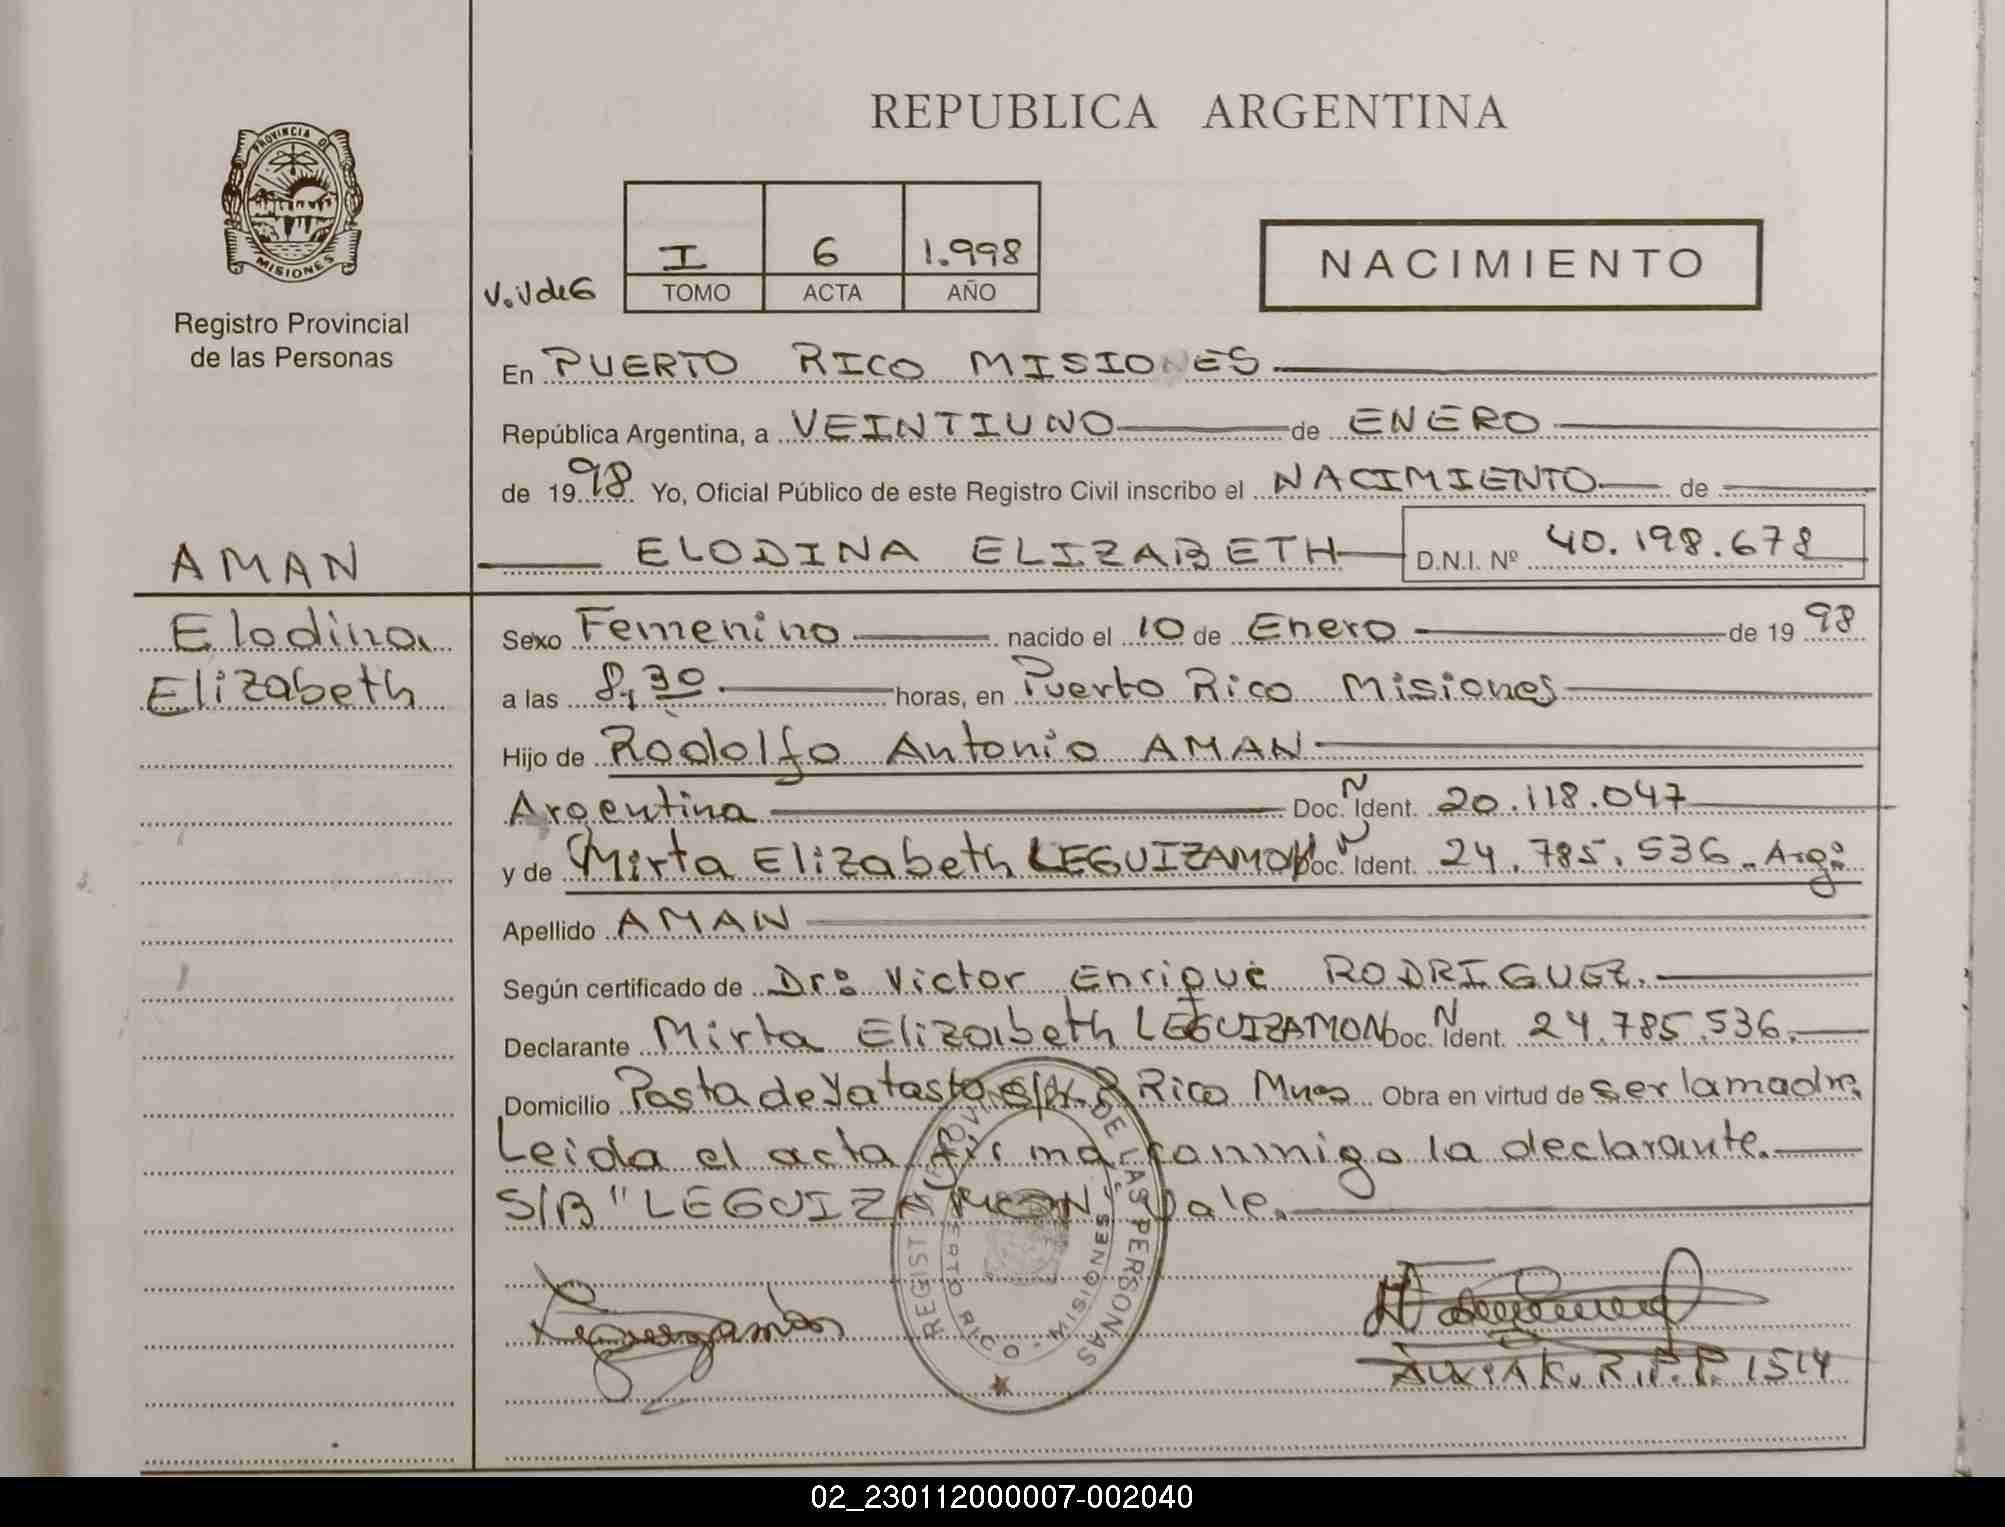 REPUBLICA ARGENTINA
PROVINCIA DE
MISIONES
Registro Provincial
de las Personas
V.V de G
I 6 1.998
TOMO ACTA AÑO
NACIMIENTO
En PUERTO RICO MISIONES
República Argentina, a VEINTIUNO de ENERO
de 19 98 Yo, Oficial Público de este Registro Civil inscribo el NACIMIENTO de
ELODINA ELIZABETH D.N.I. Nº 40.198.678
AMAN
Elodina
Elizabeth
Sexo Femenino nacido el 10 de Enero de 19 98
a las 8,30 horas, en Puerto Rico Misiones
Hijo de Rodolfo Antonio AMAN
Argentina Doc. N Ident. 20.118.047
y de Mirta Elizabeth LEGUIZAMON Doc. N Ident. 24.785.536. Arg.
Apellido AMAN
Según certificado de Dr: Victor Enrique RODRIGUEZ.
Declarante Mirta Elizabeth LEGUIZAMON Doc. N Ident. 24.785.536.
Domicilio Posta de Yatasto s/N. P. Rico Mnes Obra en virtud de ser la madre.
Leida el acta firma conmigo la declarante.
S/B "LEGUIZAMON" Vale.
REGISTRO PROVINCIAL DE LAS PERSONAS
PUERTO RICO - MISIONES
Leguizamon
R.P.P. 1514
02_230112000007-002040